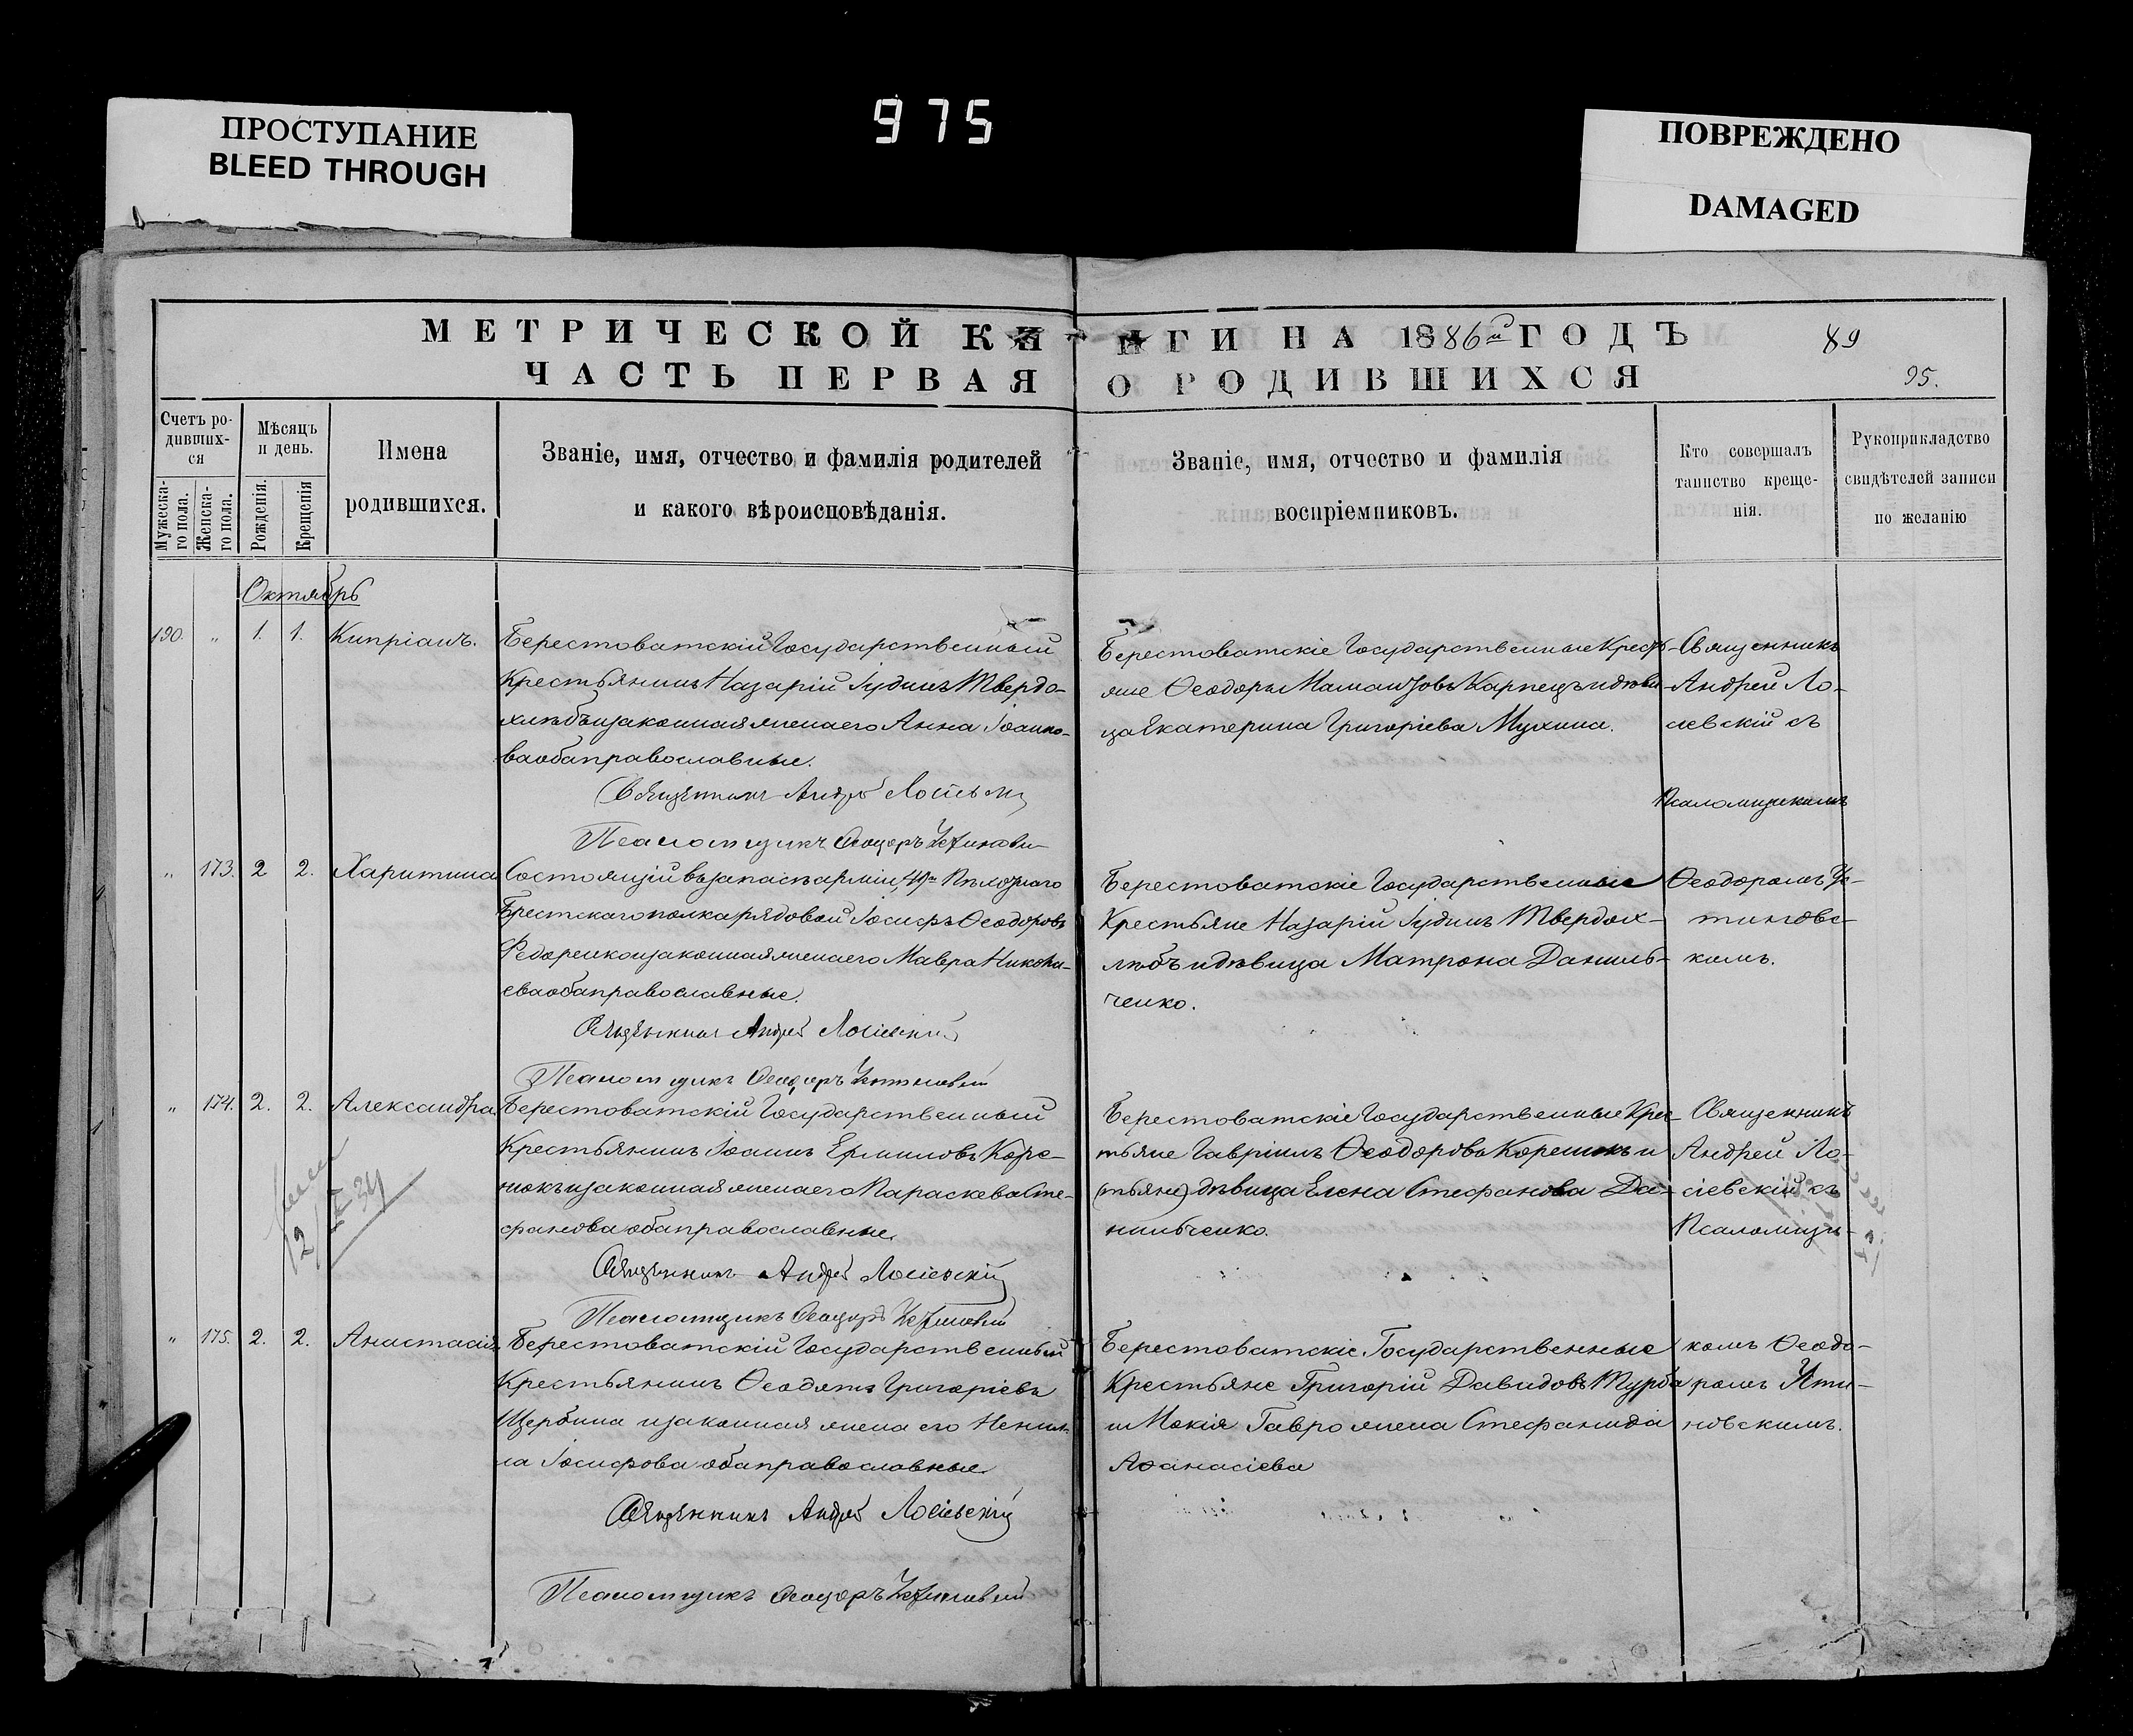 ПРОСТУПАНИЕ
BLEED THROUGH
975
ПОВРЕЖДЕНО
DAMAGED
МЕТРИЧЕСКОЙ КНИГИ НА 1886й ГОДЪ
89
ЧАСТЬ ПЕРВАЯ О РОДИВШИХСЯ
95.
Счетъ ро-
дивших-
ся
Мужеска-
го пола.
Женска-
го пола.
Мѣсяцъ
и день.
Рожденія.
Крещенія
Имена
родившихся.
Званіе, имя, отчество и фамилія родителей
и какого вѣроисповѣданія.
Званіе, имя, отчество и фамилія
воспріемниковъ.
Кто совершалъ
таинство креще-
нія.
Рукоприкладство
свидѣтелей записи
по желанію
Октябрь
190. „ 1. 1. Кипріанъ.
Берестоватскій Государственный
Крестьянинъ Назарій Іудинъ Твердо-
хлѣбъ и законная жена его Анна Іоанно-
ва оба православные.
Священникъ Андрей Лосіевскій
Псаломщикъ Ѳеодоръ
Берестоватскіе Государственные Кресть-
яне Ѳеодоръ Карпецъ и дѣви-
ца Екатерина Григоріева Мухина.
Священникъ
Андрей Ло-
сіевскій съ
Псаломщикомъ
„ 173. 2 2. Харитина
Состоящій въ запасѣ арміи 49го Пѣхотнаго
Брестскаго полка рядовой Іосифъ Ѳеодоровъ
Федоренко и законная жена его Мавра Никола-
ева оба православные.
Священникъ Андрей Лосіевскій
Псаломщикъ Ѳеодоръ
Берестоватскіе Государственные
Крестьяне Назарій Іудинъ Твердох-
лѣбъ и дѣвица Матрона Даниль-
ченко.
Ѳеодоромъ Ус-
тиновс-
кимъ.
„ 174. 2. 2. Александра.
12/IX 34
Берестоватскій Государственный
Крестьянинъ Іоаннъ Ермиловъ Коре-
нюкъ и законная жена его Параскева Сте-
фанова оба православные.
Священникъ Андрей Лосіевскій
Псаломщикъ Ѳеодоръ
Берестоватскіе Государственные Крес-
тьяне Гавріилъ Ѳеодоровъ и
(тьяне) дѣвица Елена Стефанова Да-
нильченко.
Священникъ
Андрей Ло-
сіевскій съ
Псаломщи-
„ 175. 2. 2. Анастасія.
Берестоватскій Государственный
Крестьянинъ Ѳеодотъ Григоріевъ
Щербина и законная жена егоНенил-
ла Іосифова оба православные.
Священникъ Андрей Лосіевскій
Псаломщикъ Ѳеодоръ
Берестоватскіе Государственные
Крестьяне Григорій Давидовъ Турба
и Мокія Гавро жена Стефанида
Аѳанасіева
комъ Ѳеодо-
ромъ Усти-
новскимъ.